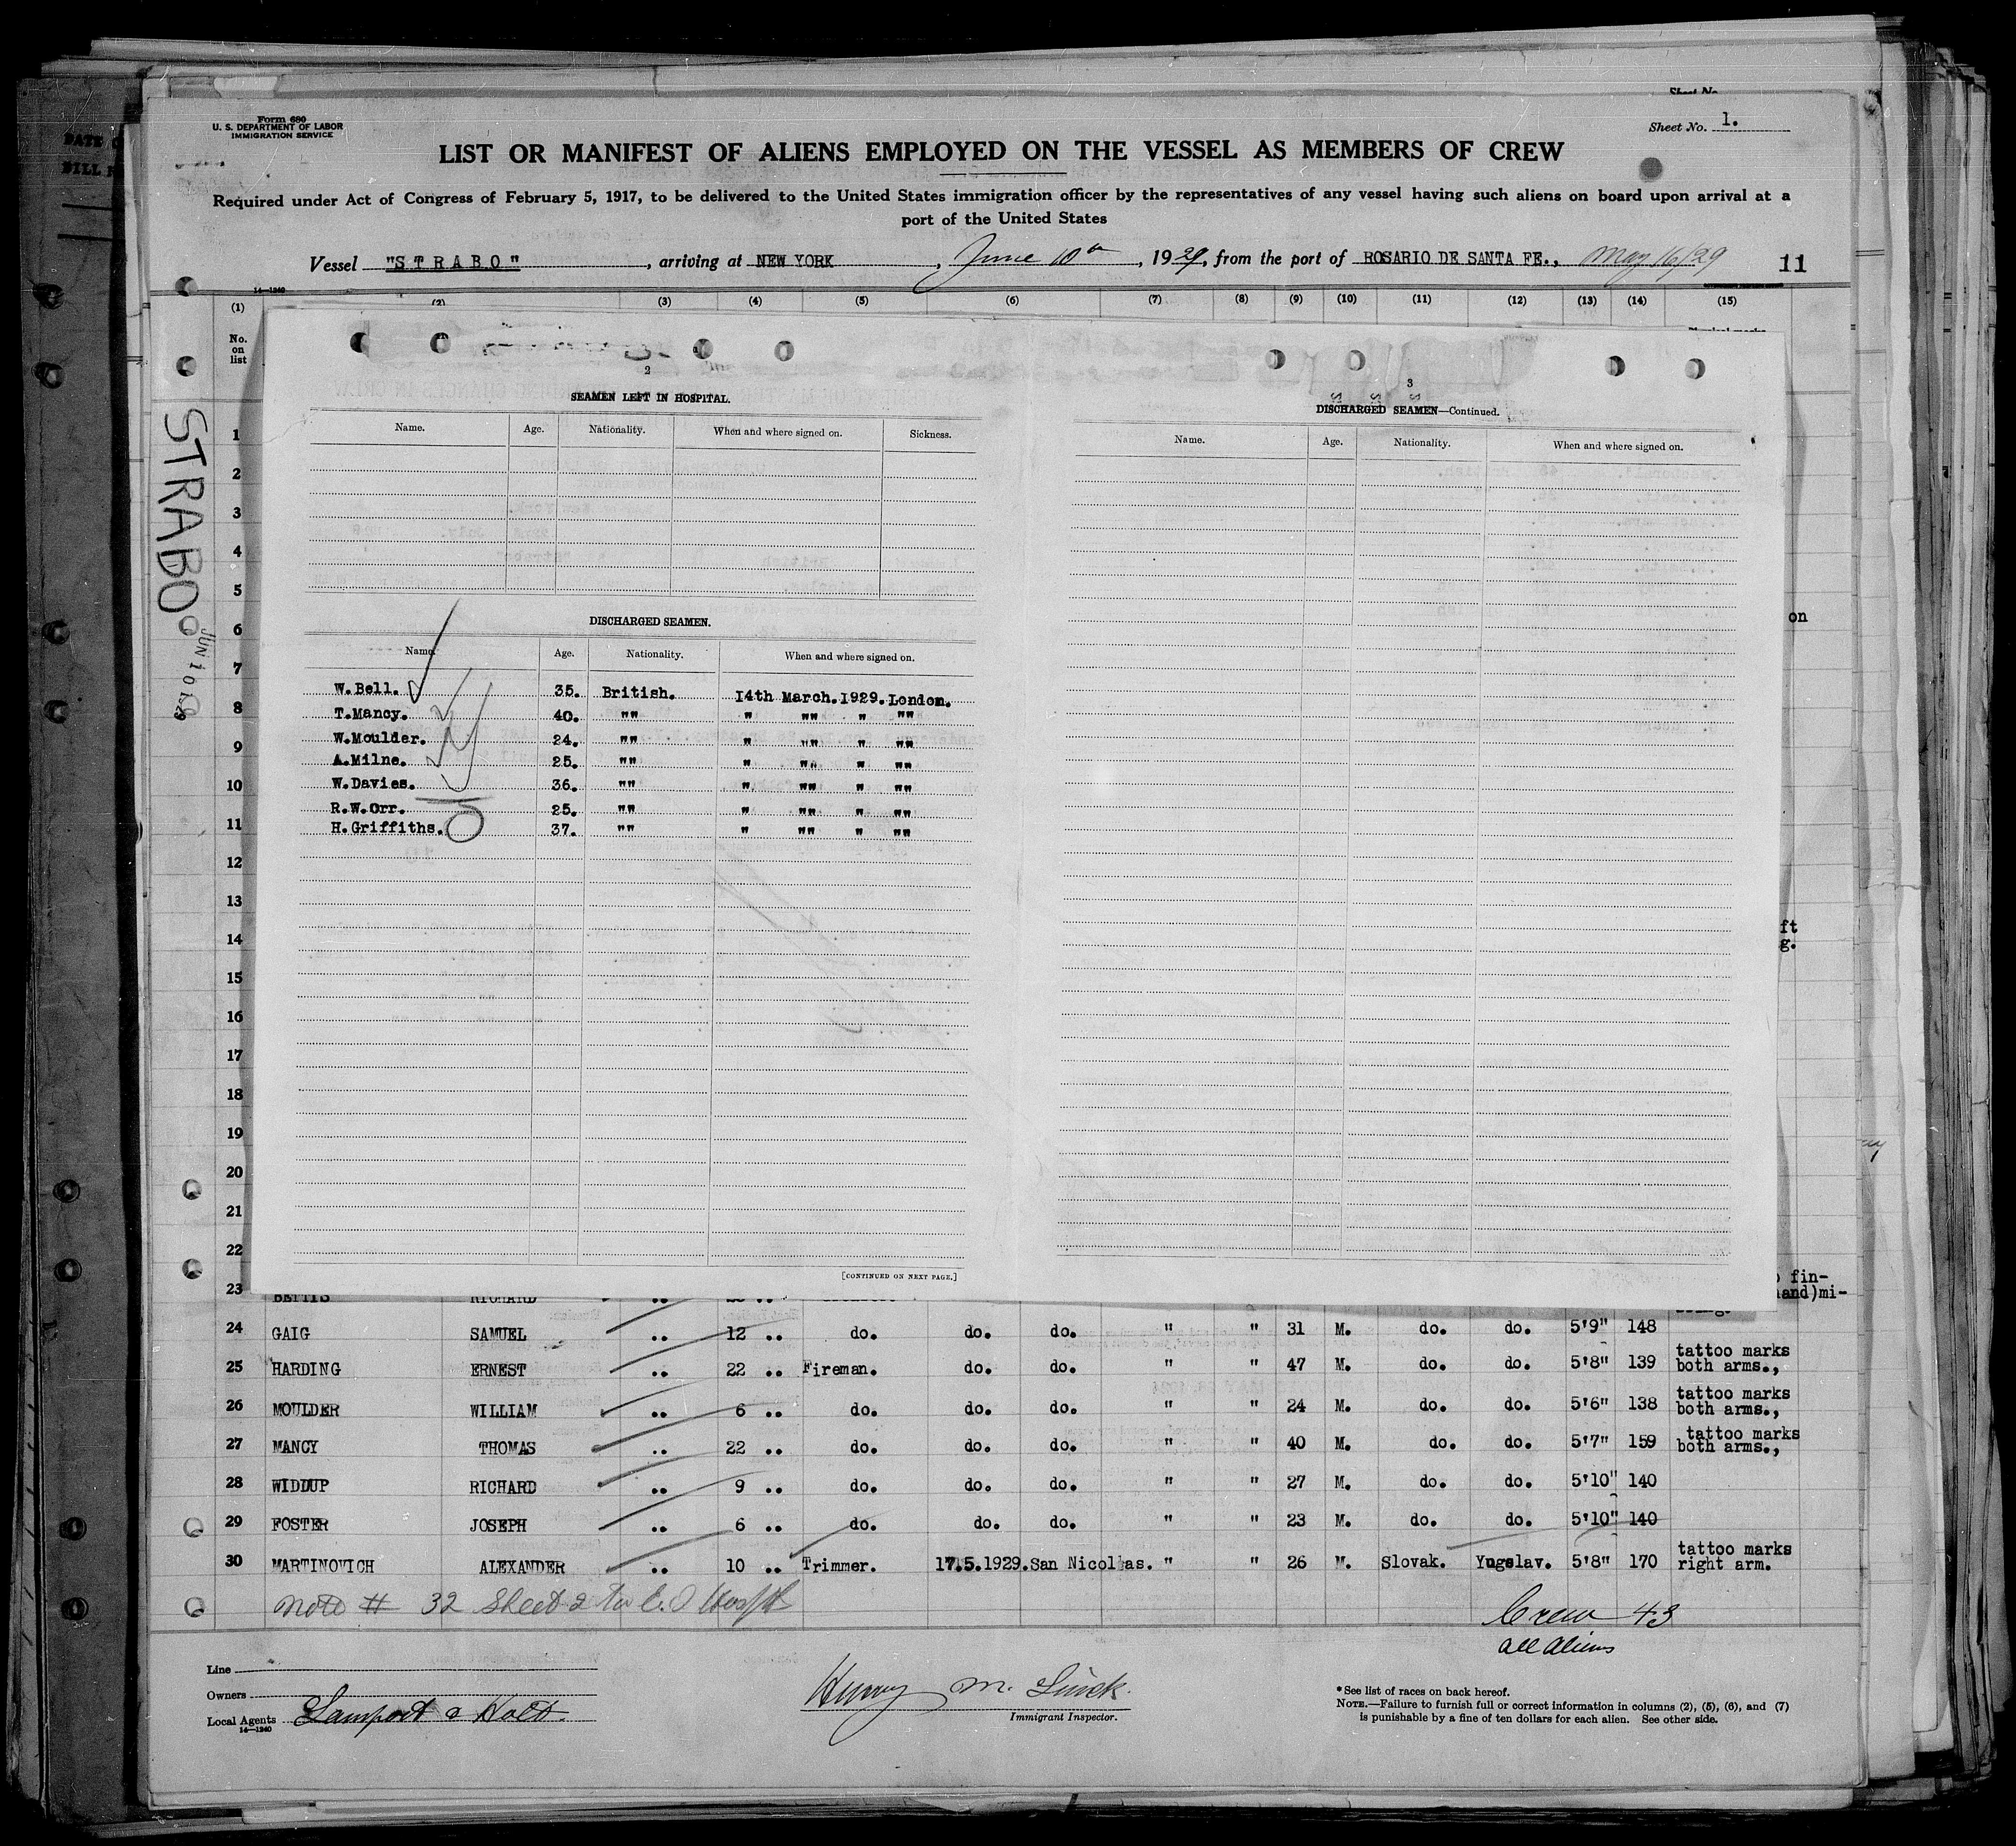 Form 680
U. S. DEPARTMENT OF LABOR
IMMIGRATION SERVICE
Sheet No.
Sheet No. 1.
LIST OR MANIFEST OF ALIENS EMPLOYED ON THE VESSEL AS MEMBERS OF CREW
Required under Act of Congress of February 5, 1917, to be delivered to the United States immigration officer by the representatives of any vessel having such aliens on board upon arrival at a
port of the United States
Vessel "STRABO", arriving at NEW YORK, June 10th, 1929, from the port of ROSARIO DE SANTA FE., May 16/29
11
14—1240
(1) (2) (3) (4) (5) (6) (7) (8) (9) (10) (11) (12) (13) (14) (15)
No.
on
list
STRABO
JUN 10 1929
2
SEAMEN LEFT IN HOSPITAL.
Name. Age. Nationality. When and where signed on. Sickness.
DISCHARGED SEAMEN.
Name. Age. Nationality. When and where signed on.
W.Bell. 35. British. 14th March.1929.London.
T.Mancy. 40. "" " "" " ""
W.Moulder. 24. "" " "" " ""
A.Milne. 25. "" " "" " ""
W.Davies. 36. "" " "" " ""
R.W.Orr. 25. "" " "" " ""
H.Griffiths. 37. "" " "" " ""
[CONTINUED ON NEXT PAGE.]
3
DISCHARGED SEAMEN—Continued.
Name. Age. Nationality. When and where signed on.
1
2
3
4
5
6
on
7
8
9
10
11
12
13
14
ft
g.
15
16
17
18
19
20
21
22
fin-
23 BETTIS RICHARD hand)mi-
24 GAIG SAMUEL .. 12 .. do. do. do. " " 31 M. do. do. 5'9" 148
25 HARDING ERNEST .. 22 .. Fireman. do. do. " " 47 M. do. do. 5'8" 139 tattoo marks both arms.,
26 MOULDER WILLIAM .. 6 .. do. do. do. " " 24 M. do. do. 5'6" 138 tattoo marks both arms.,
27 MANCY THOMAS .. 22 .. do. do. do. " " 40 M. do. do. 5'7" 159 tattoo marks both arms.,
28 WIDDUP RICHARD .. 9 .. do. do. do. " " 27 M. do. do. 5'10" 140
29 FOSTER JOSEPH .. 6 .. do. do. do. " " 23 M. do. do. 5'10" 140
30 MARTINOVICH ALEXANDER .. 10 .. Trimmer. 17.5.1929. San Nicollas. " " 26 M. Slovak. Yugslav. 5'8" 170 tattoo marks right arm.
Note # 32 Sheet 2
Crew 43
all aliens
Line
Owners
Local Agents Lamport & Holt
14—1240
Henry M. Linck.
Immigrant Inspector.
*See list of races on back hereof.
NOTE.—Failure to furnish full or correct information in columns (2), (5), (6), and (7)
is punishable by a fine of ten dollars for each alien. See other side.